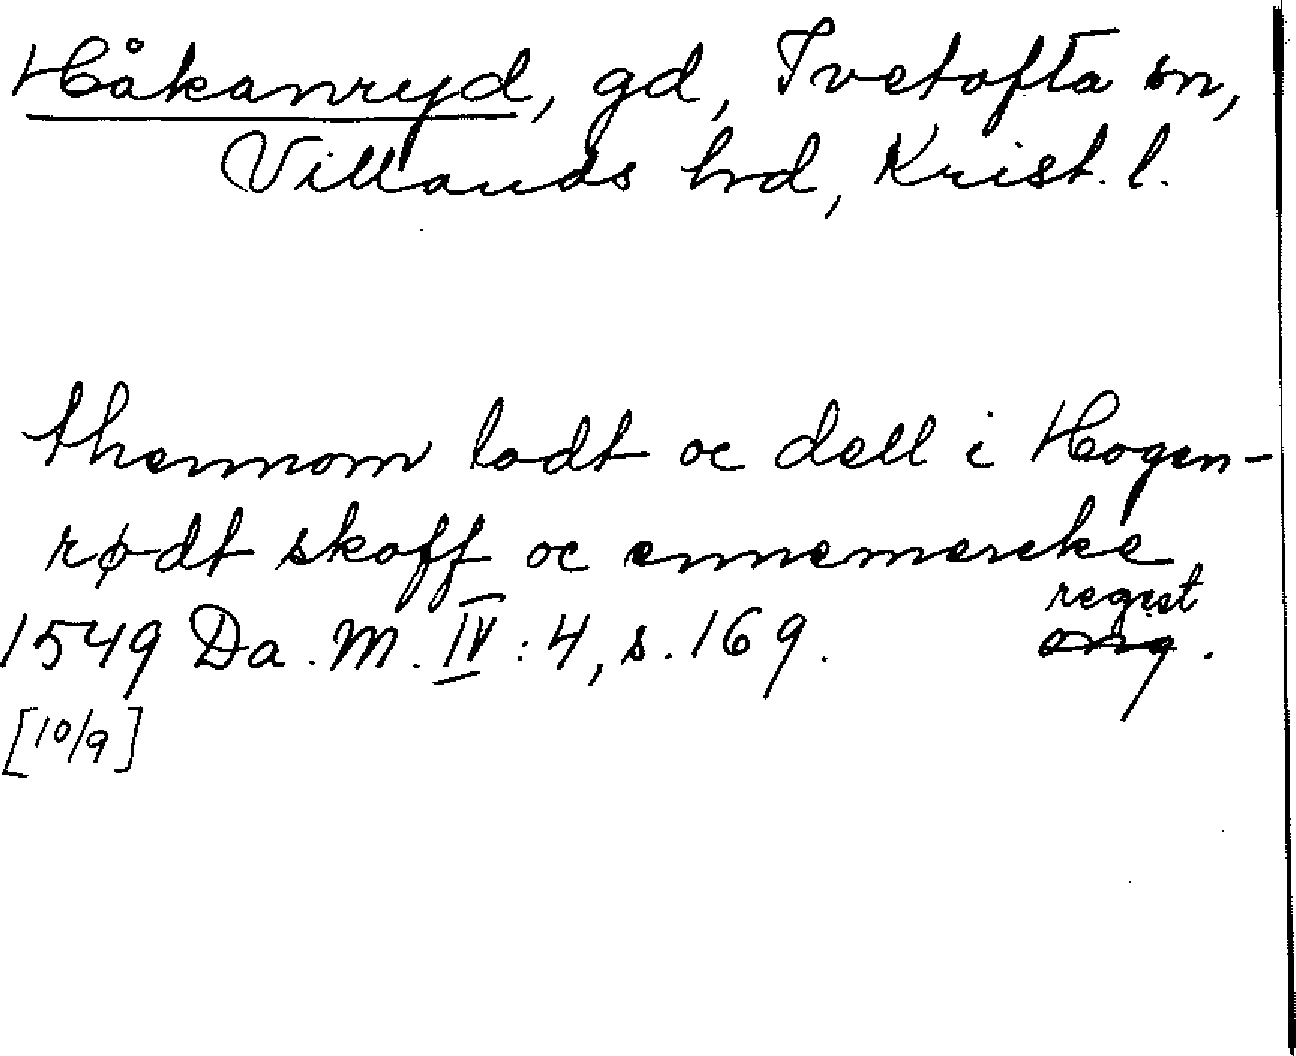 Håkanryd, gd, Ivetofta sn,
Villands hrd, Krist. l.
thennom lodt oc dell i Hogen-
rødt skoff oc ennemercke
regist
1549 Da. M. IV : 4, s. 169. orig.
[10/9]